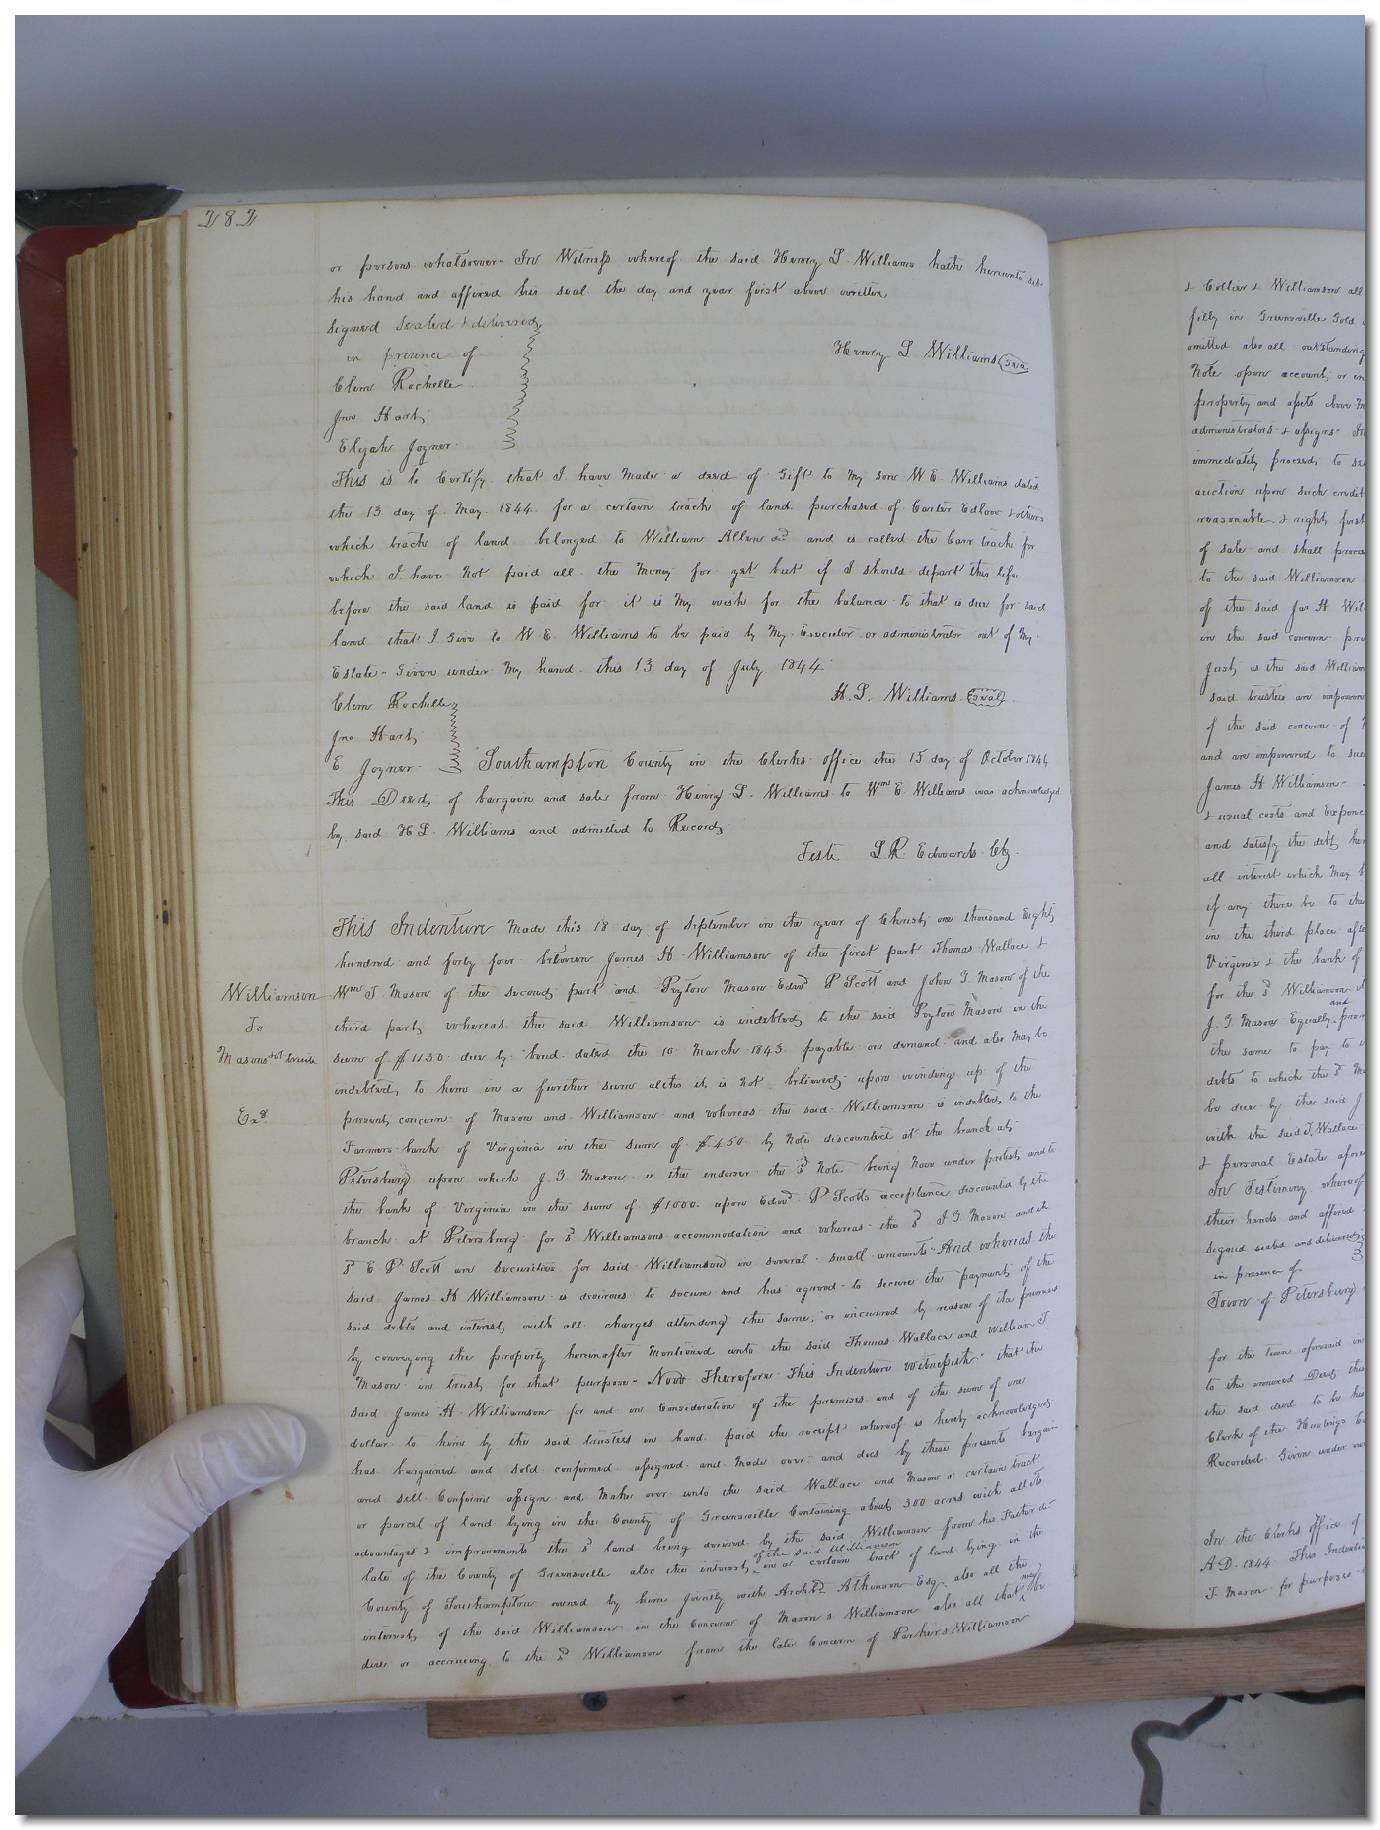 282
or persons whatsoever - In Witness whereof the said Henry L. Williams hath hereunto set
his hand and affixed his seal the day and year first above written
Signed Sealed & delivered
in presence of
Henry L Williams Seal
Clem Rochelle
Jno Hart
Elijah Joyner
This is to Certify that I have Made a deed of Gift to My son W E Williams dated
the 13 day of May 1844 for a certain track of land purchased of Carter Edloe & others
which track of land belonged to William Allen decd and is called the Carr track for
which I have Not paid all the Money for yet but if I should depart this life
before the said land is paid for it is My wish for the balance to that is due for said
land that I Give to W E Williams to be paid by My Executor or administrator out of My
Estate - Given under My hand this 13 day of July 1844
H. L. Williams Seal
Clem Rochelle
Jno Hart
E. Joyner
Southampton County in the Clerks office the 15 day of October 1844
This Deed of bargain and sale from Henry L. Williams to Wm E. Williams was acknowledged
by said H L. Williams and admitted to Record
Teste L. R. Edwards Clk
This Indenture Made this 18 day of September in the year of Christ one thousand Eight
hundred and forty four between James H Williamson of the first part Thomas Wallace &
Williamson
To
Masons tst
Exd
Wm T Mason of the second part and Peyton Mason Edwd P Scott and John G. Mason of the
third part whereas the said Williamson is indebted to the said Peyton Mason in the
sum of $1130 due by bond dated the 10 March 1843 payable on demand and also May be
indebted to him in a further sum altho it is Not believed upon winding up of the
present concern of Mason and Williamson and whereas the said Williamson is indebted to the
Farmers bank of Virginia in the sum of $450 by Note discounted at the branch at
Petersburg upon which J. G. Mason is the endorser the sd Note being Now under protest and to
the bank of Virginia in the sum of $1000 upon Edwd P Scotts acceptance discounted by the
branch at Petersburg for sd Williamsons accommodation and whereas the sd J G Mason and the
sd E P Scott are Securities for said Williamson in several small amounts - And whereas the
said James H Williamson is desirous to secure and has agreed to secure the payment of the
said debts and interest with all charges attending the same, or incurred by reason of the premises
by conveying the property hereinafter Mentioned unto the said Thomas Wallace and William T
Mason in trust for that purpose - Now Therefore This Indenture Witnesseth that the
said James H Williamson for and in Consideration of the premises and of the sum of one
dollar to him by the said trustees in hand paid the receipt whereof is hereby acknowledged
has bargained and sold confirmed assigned and Made over and does by these presents bargain
and sell Confirm assign and Make over unto the said Wallace and Mason a certain tract
or parcel of land lying in the County of Greensville Containing about 300 acres with all its
advantages & improvements the sd land being devised by the said Williamson from his Father
of the said Williamson
late of the County of Greensville also the interest in a certain tract of land lying in the
County of Southampton owned by him jointly with Archbd Atkinson Esq also all the
interest of the said Williamson in the Concern of Mason & Williamson also all that may be
due or accrueing to the sd Williamson from the late Concern of Parker & Williamson
& Collier & Williamson all
filly in Greensville Gold
omitted also all outstanding
Note open account or
property and assets above
administrators & assigns -
immediately proceed to
auction upon such credit
reasonable & right first
of sale and shall
to the said Williamson
of the said Jas H
in the said concern
Just as the said
said trustees are
of the said concern of
and are empowered to
James H Williamson -
& usual costs and
and satisfy the debt
all interest which May
if any there be to the
in the third place
Virginia & the bank of
for the sd Williamson
and
J. G. Mason Equally
the same to pay to
debts to which the sd
be due by the said J
with the said T. Wallace
& personal Estate
In Testimony whereof
their hands and affixed
Signed sealed and delivered
in presence of
Town of Petersburg
for the town aforesaid
to the annexed Deed
the said deed to be
Clerk of the Hustings
Recorded Given under
In the Clerks office of
A.D. 1844 This
T. Mason for purposes